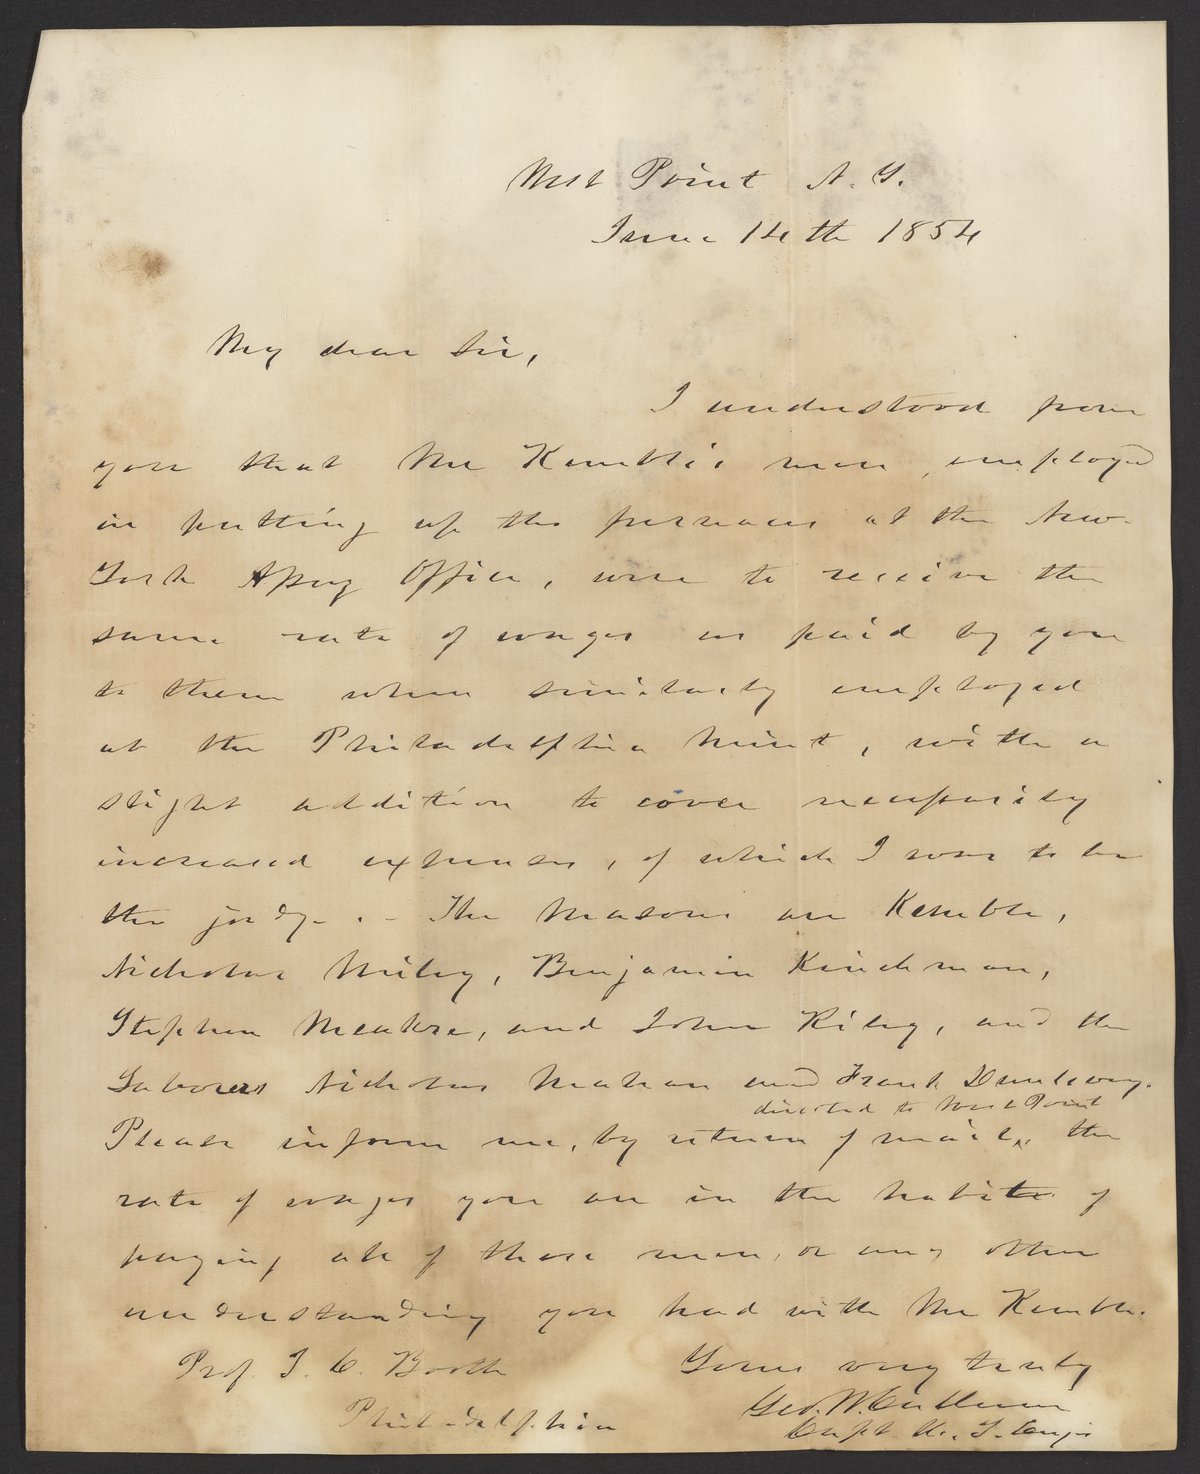 West Point N. Y.
June 14th 1854
My dear Sir,
I understood from
you that Mr Kemble's men, employed
in putting up the furnaces at the New-
York Assay Office, were to receive the
same rate of wages as paid by you
to them when similarly employed
at the Philadelphia Mint, with a
slight addition to cover necessarily
increased expenses, of which I was to be
the judge. - The Masons are Kemble,
Nicholas Miley, Benjamin Kinckman,
Stephen Meakre, and John Riley, and the
Laborers Nicholas Mahan and Frank
directed to West Point
Please inform me, by return of mail, the
rate of wages you are in the habit of
paying all of these men, or any other
understanding you had with Mr Kemble.
Prof. J. C. Booth Yours very truly
Philadelphia Geo. W. Cullum
Capt. U. S. Engrs